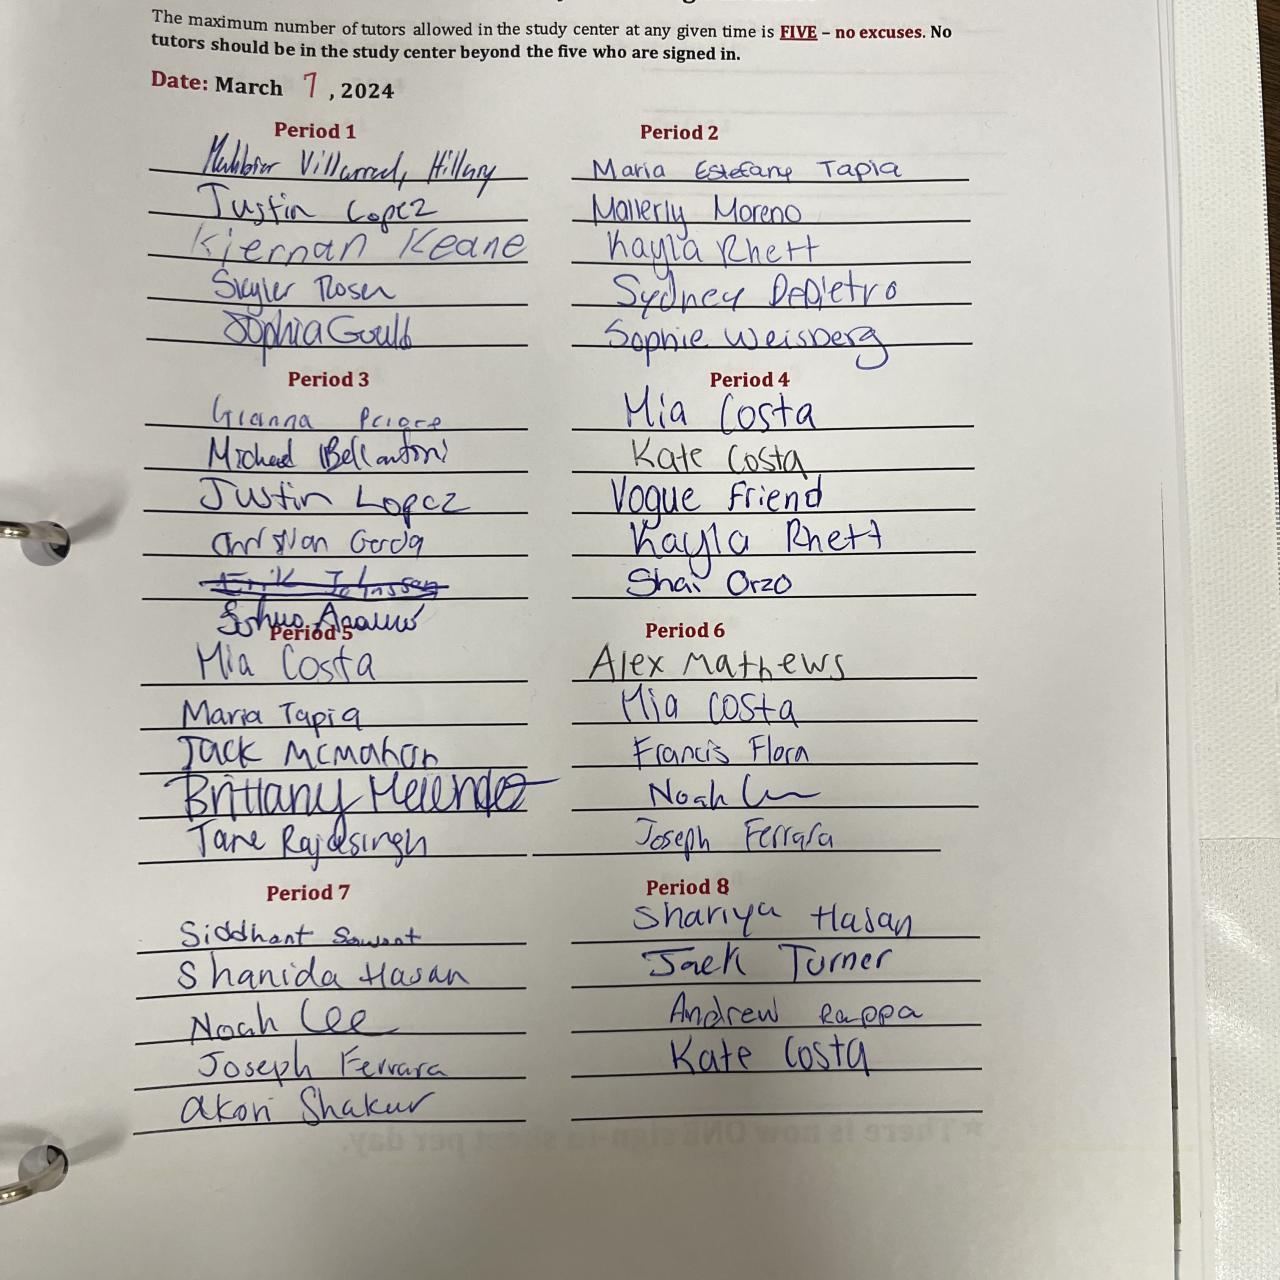 The maximum number of tutors allowed in the study center at any given time is FIVE – no excuses. No
tutors should be in the study center beyond the five who are signed in.
Date: March 7, 2024
Period 1
Villarreal, Hillary
Justin Lopez
Kiernan Keane
Skyler Rosen
Sophia Gould
Period 2
Maria Estefany Tapia
Mallerly Moreno
Kayla Rhett
Sydney DePietro
Sophie Weisberg
Period 3
Gianna Priore
Michael Bellantoni
Justin Lopez
Christian
Erik Johnssen
Period 4
Mia Costa
Kate Costa
Vogue Friend
Kayla Rhett
Shai Orzo
Period 5
Mia Costa
Maria Tapia
Jack McMahon
Brittany Melendez
Jane Rajdesingh
Period 6
Alex Mathews
Mia Costa
Francis Flora
Noah
Joseph Ferrara
Period 7
Siddhant Sawant
Shanida Hasan
Noah Lee
Joseph Ferrara
Akori Shakur
Period 8
Shariya Hasan
Jack Turner
Andrew Rappa
Kate Costa